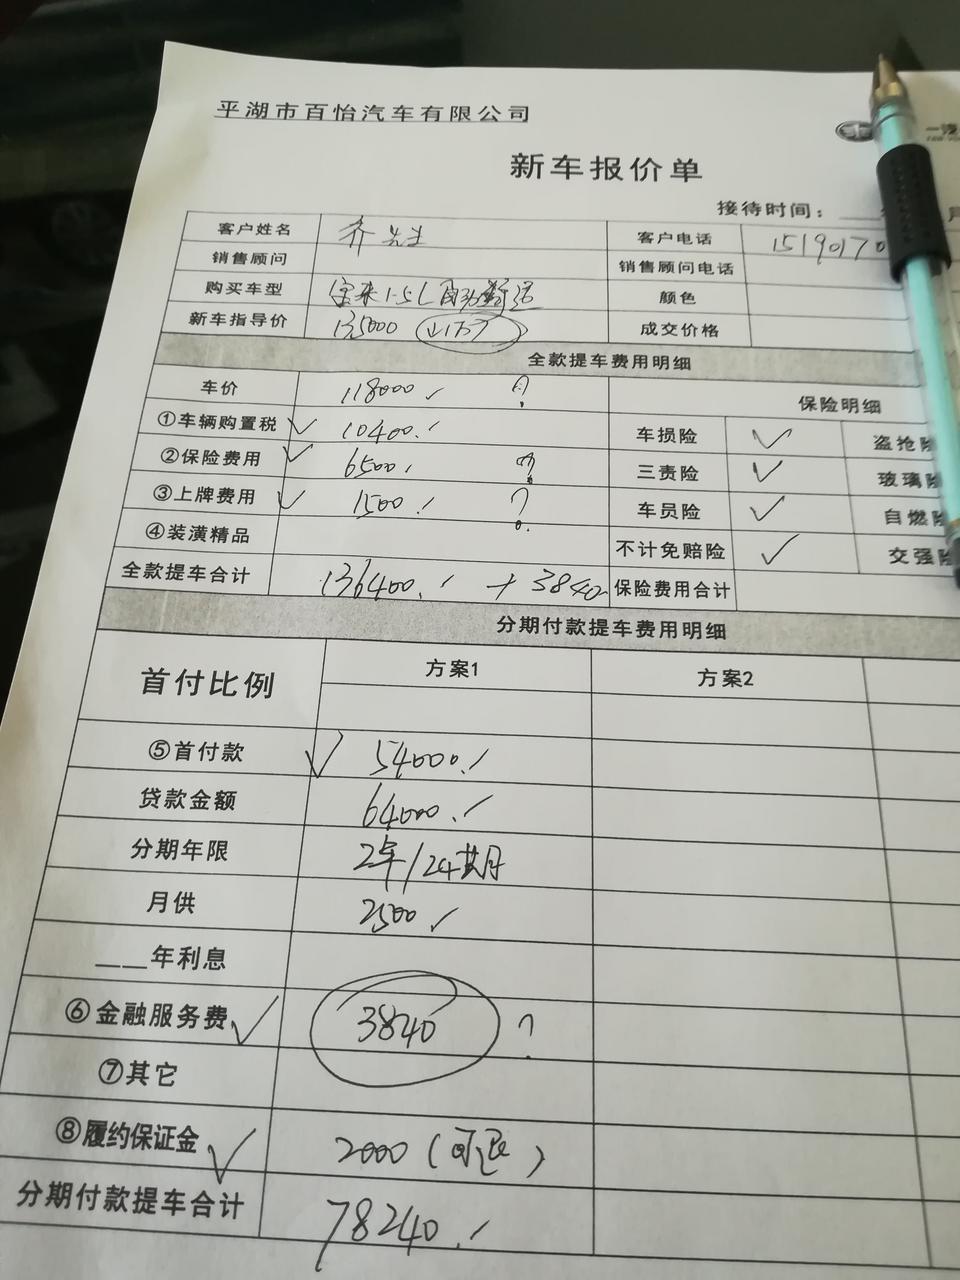 平湖市百怡汽车有限公司
新车报价单
接待时间：
客户姓名 齐先生 客户电话 15190170
销售顾问 销售顾问电话
购买车型 宝来1.5L自动舒适 颜色
新车指导价 135000 ↓1万7 成交价格
全款提车费用明细
车价 118000 ? 保险明细
①车辆购置税 ✓ 10400 车损险 ✓ 盗抢险
②保险费用 ✓ 6500 ? 三责险 ✓ 玻璃险
③上牌费用 ✓ 1500 ? 车员险 ✓ 自燃险
④装潢精品 不计免赔险 ✓ 交强险
全款提车合计 136400 + 3840 保险费用合计
分期付款提车费用明细
首付比例 方案1 方案2
⑤首付款 ✓ 54000
贷款金额 64000
分期年限 2年/24期
月供 2500
___年利息
⑥金融服务费 ✓ 3840 ?
⑦其它
⑧履约保证金 ✓ 2000(可退)
分期付款提车合计 78240